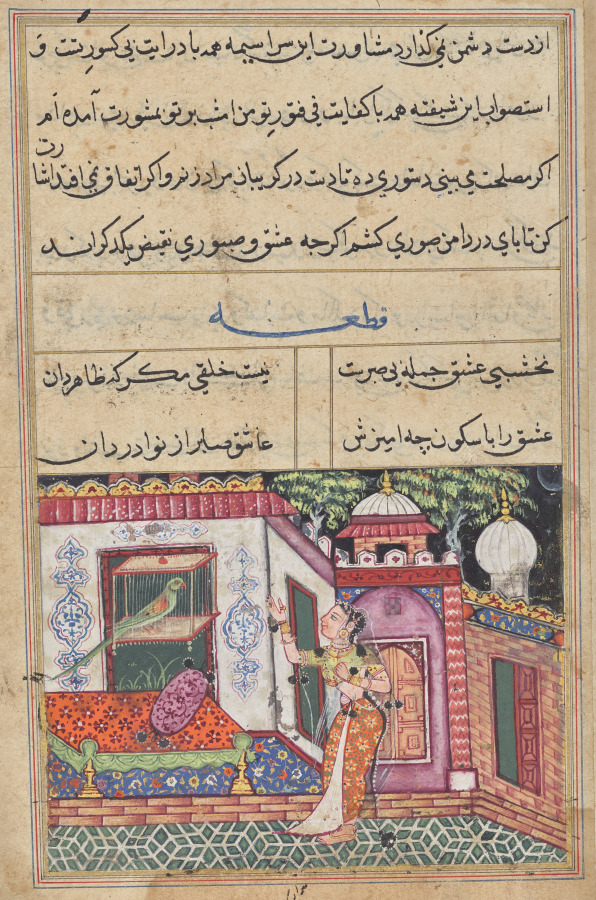 ازدست دشمن نمی کذارد مشاورت این سراسیمه همه با درایت بی کسورتت و
استصواب این شیفته همه با کفایت فی فتور تو من امشب بر تو بمشورت آمده ام
اکر مصلحت می بینی دستوری ده تا دست در کریبان مراد زنم و اکر اتفاق نمی افتد اشارت
کن تا پای در دامن صبوری کشم اکرجه عشق و صبوری نقیض یکدکراند
قطعه
نخشبی عشق جمله بی صبرست
نیست خلقی مکر که ظاهر دان
عشق را با سکون چه امیزش
عاشق صابر از نوادر دان